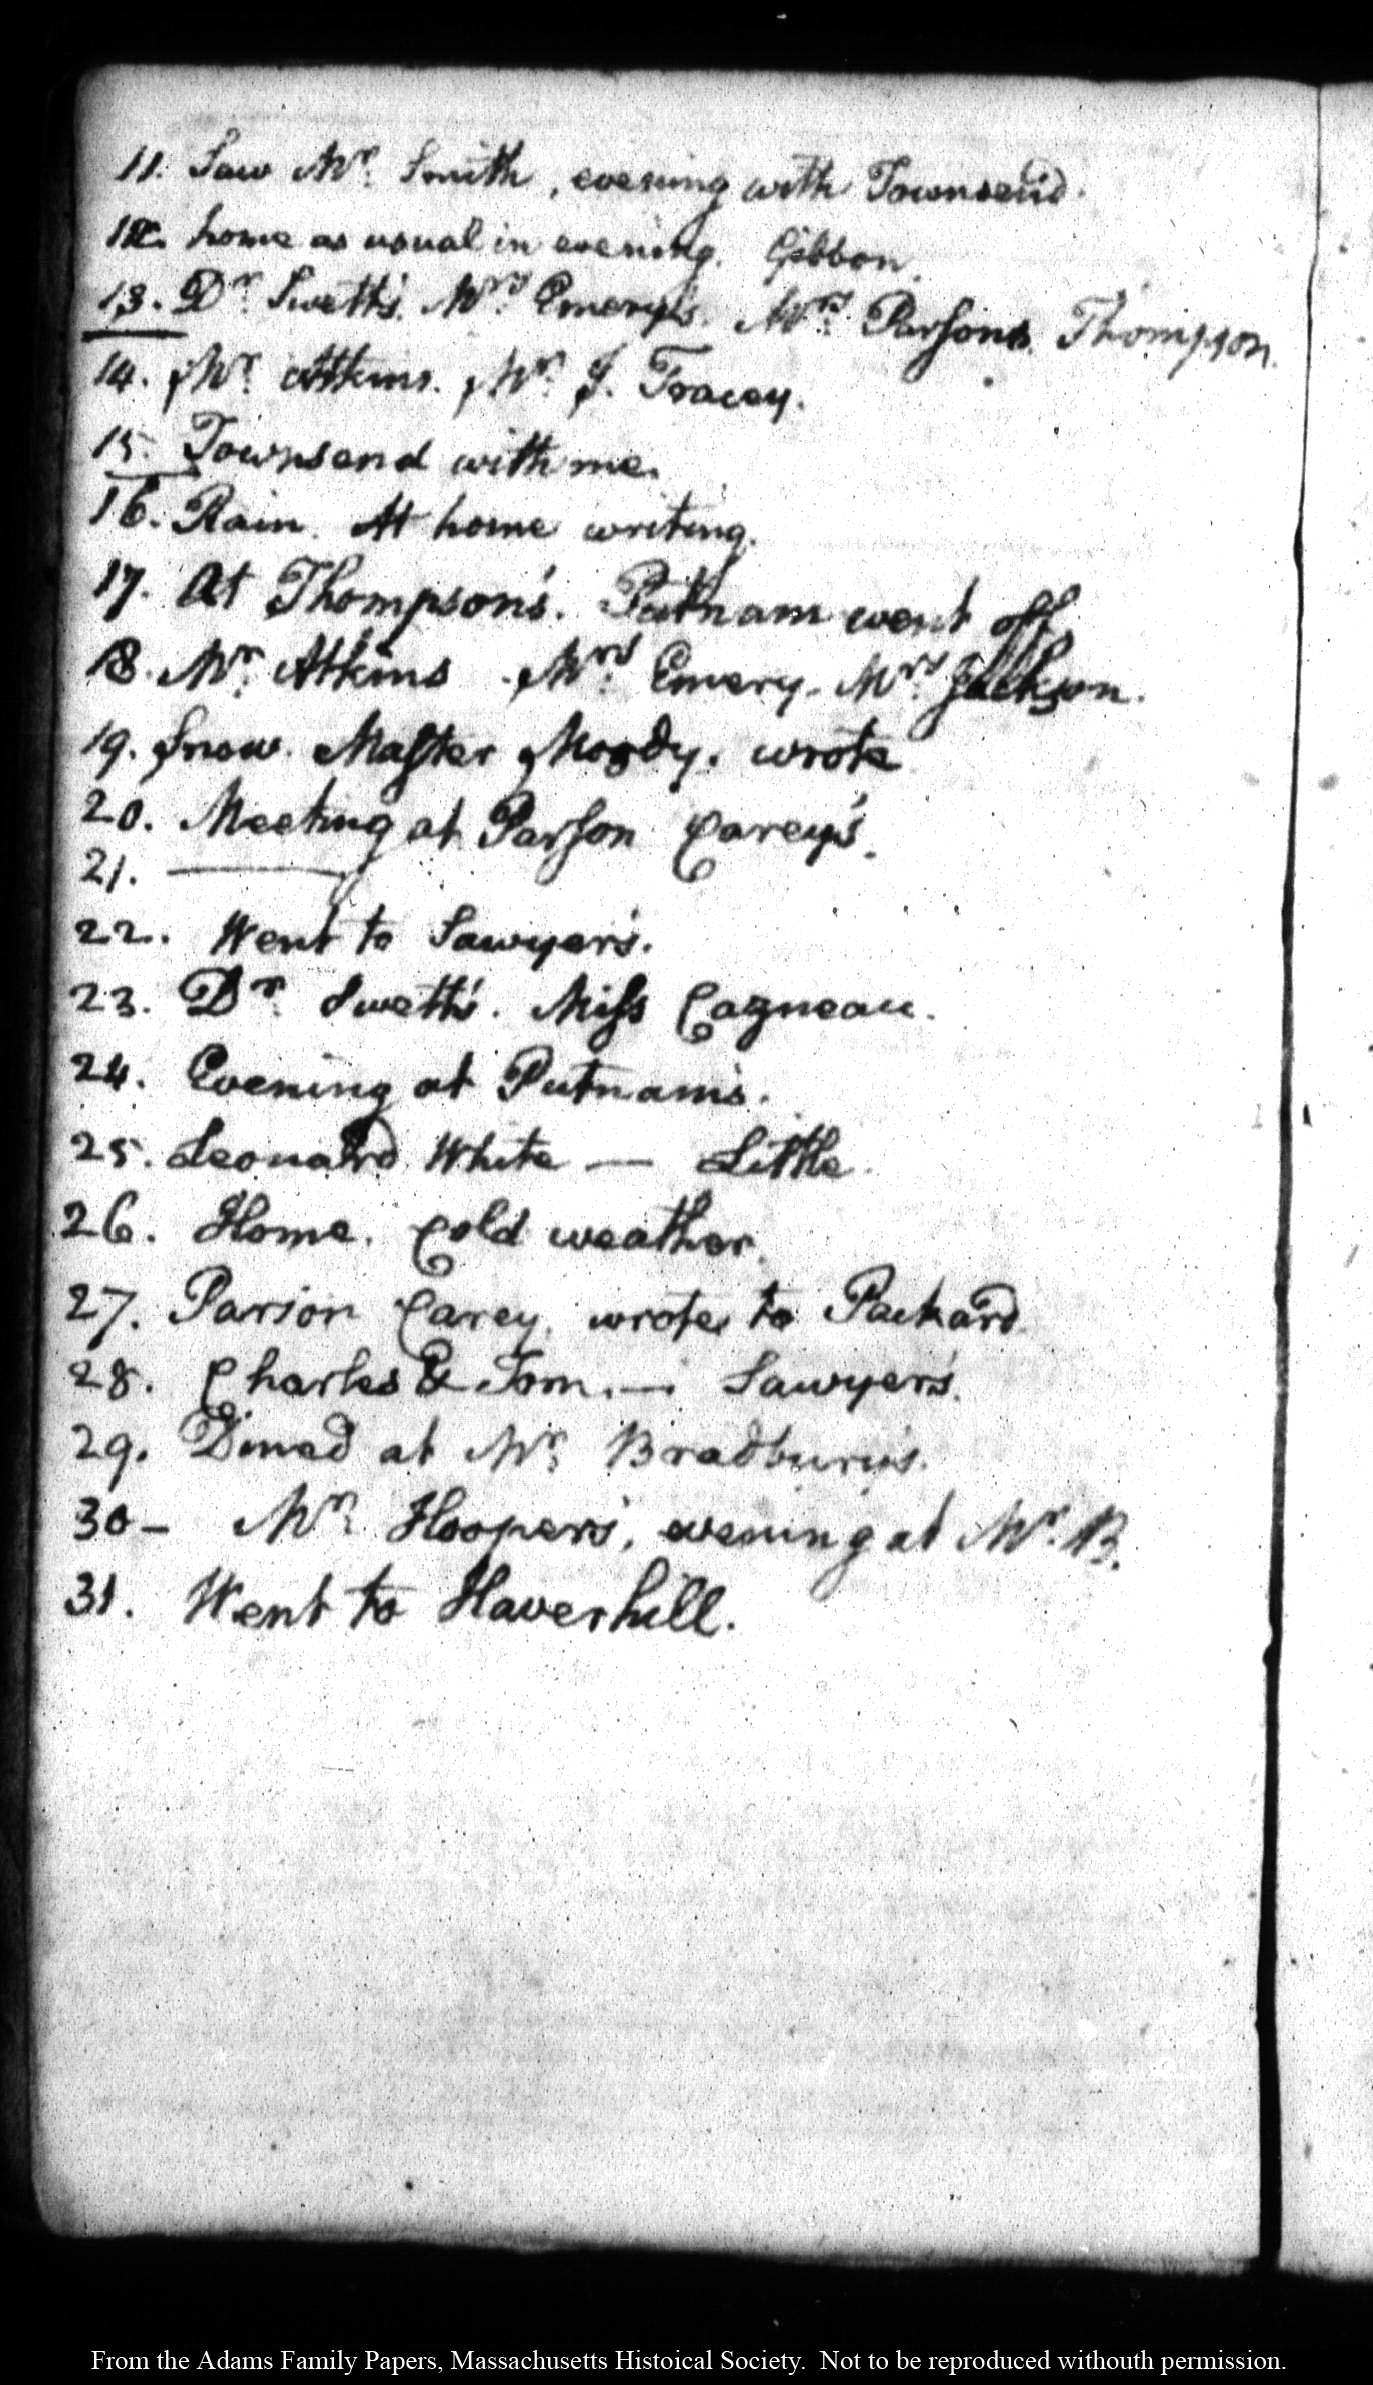 11. Saw Mr. Smith, evening with Townsend.
12. home as usual in evening. Gibbon.
13. Dr. Swett's. Mrs. Emery's. Mrs. Parsons. Thompson.
14. Mr. Atkins. Mr. J. Tracey.
15. Townsend with me.
16. Rain. At home writing.
17. At Thompson's. Putnam went off.
18. Mr. Atkins. Mrs. Emery. Mrs. Jackson.
19. Snow. Master Moody. wrote
20. Meeting at Parson Carey's.
21. ————
22. Went to Sawyer's.
23. Dr. Swett's. Miss Cazneau.
24. Evening at Putnam's.
25. Leonard White — Little.
26. Home. Cold weather.
27. Parson Carey. wrote to Packard.
28. Charles & Tom. — Sawyer's.
29. Dined at Mr. Bradbury's.
30 – Mr. Hooper's, evening at Mr. B.
31. Went to Haverhill.
From the Adams Family Papers, Massachusetts Histoical Society. Not to be reproduced withouth permission.